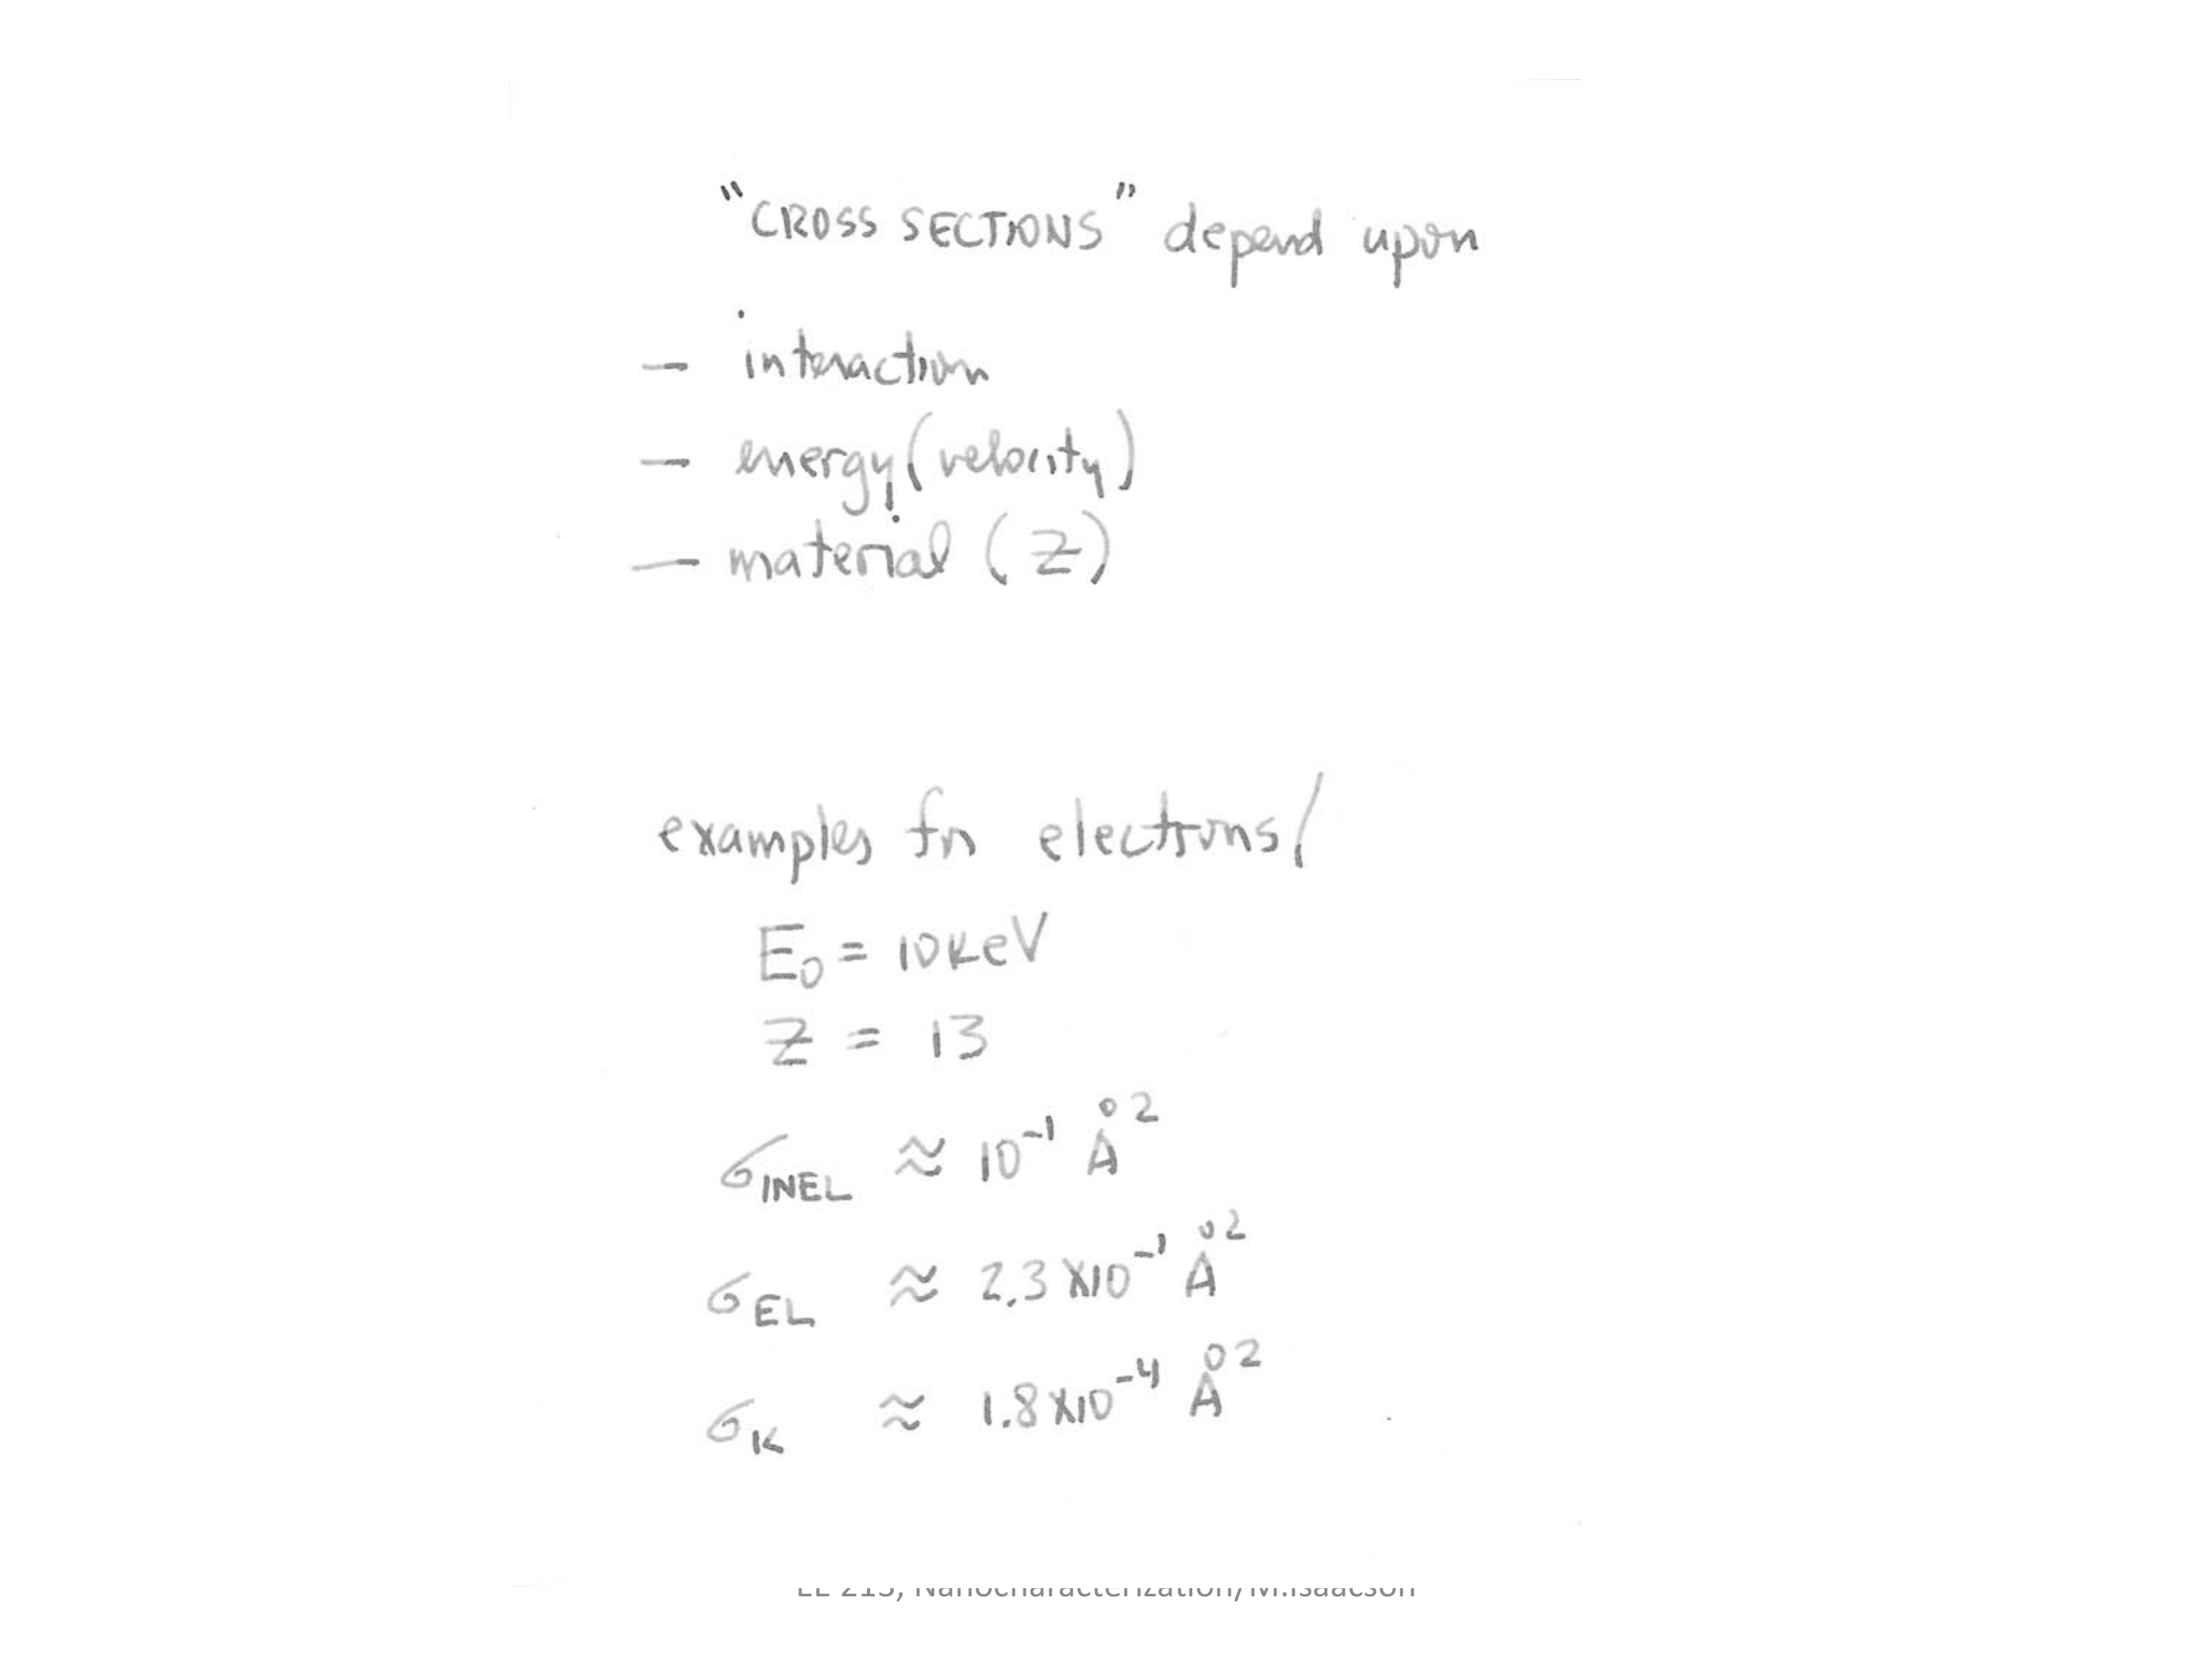 "CROSS SECTIONS" depend upon
— interaction
— energy (velocity)
— material (Z)
examples for electrons/
E₀ = 10 keV
Z = 13
σ_INEL ≈ 10⁻¹ Å²
σ_EL ≈ 2.3 x10⁻¹ Å²
σ_K ≈ 1.8 x10⁻⁴ Å²
EE 215, Nanocharacterization/M.Isaacson